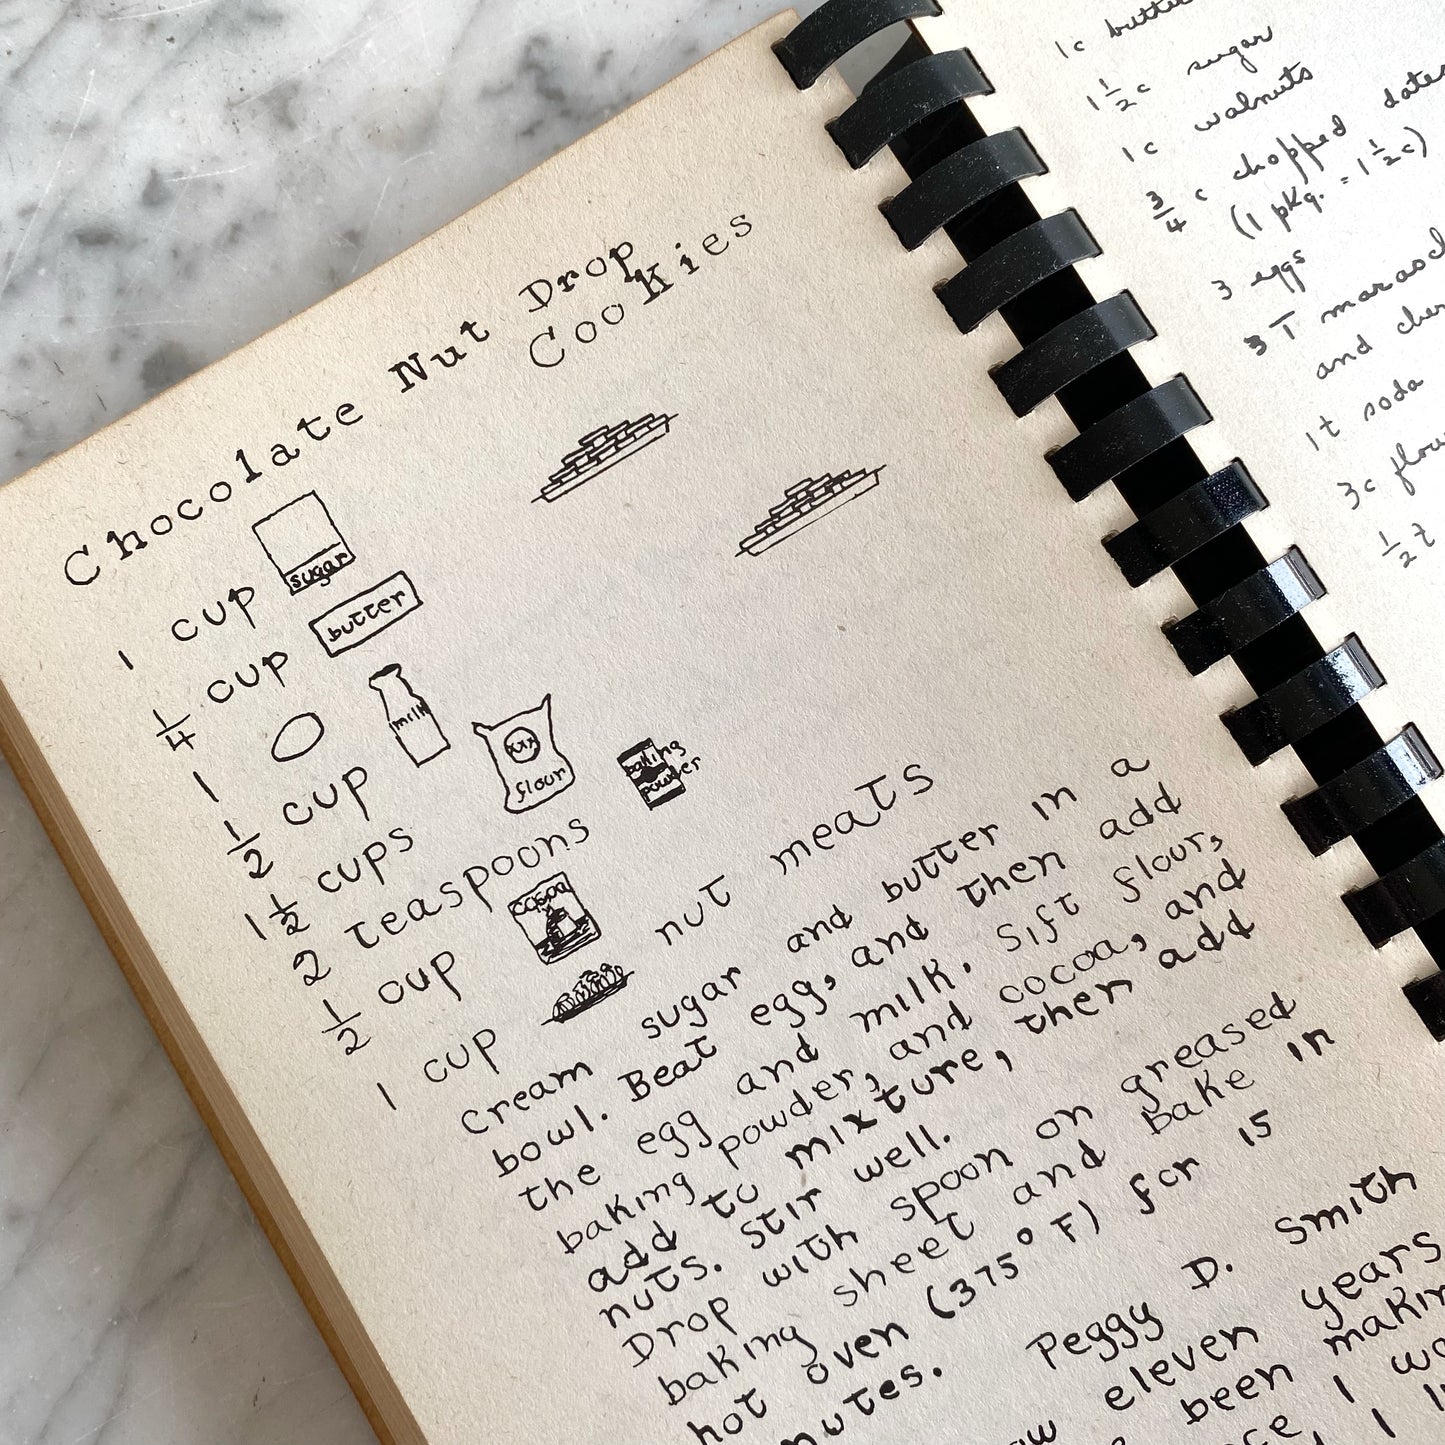 Chocolate Nut Drop
Cookies
1 cup sugar
1/4 cup butter
1
1/2 cup milk
1 1/2 cups xxx flour
2 teaspoons baking powder
1/2 cup cocoa
1 cup nut meats
Cream sugar and butter in a
bowl. Beat egg, and then add
the egg and milk. Sift flour,
baking powder, and cocoa, and
add to mixture, then add
nuts. Stir well.
Drop with spoon on greased
baking sheet and bake in
hot oven (375° F) for 15
Peggy D. Smith
eleven years
been making
I
I
1c
1 1/2c sugar
1c walnuts
3/4 c chopped dates
(1 pkg. = 1 1/2c)
3 eggs
3 T
and
1t soda
3c
1/2t